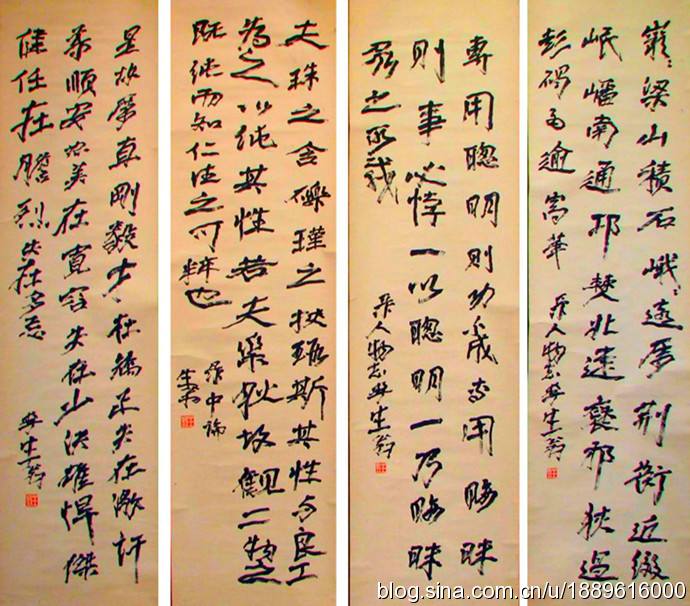 巖〻梁山積石峨〻遠屬荊衡近綴
岷嶓南通邛僰北達褒斜狹過
彭碣高逾嵩華
人物志 生翁
專用聰明則功成專用晦昧
則事必悖一以聰明一乃晦昧
之所哉
人物志 生翁
夫珠之含礫瑾之挾瑕斯其性与良工
為之以純其性若夫素故觀二物之
既純而知仁德之可粹也
中論
生翁
是故厲直剛毅才在矯正失在激訐
柔順安恕美在寬容失在少決雄悍傑
健任在膽烈失在多忌
生翁
blog.sina.com.cn/u/1889616000